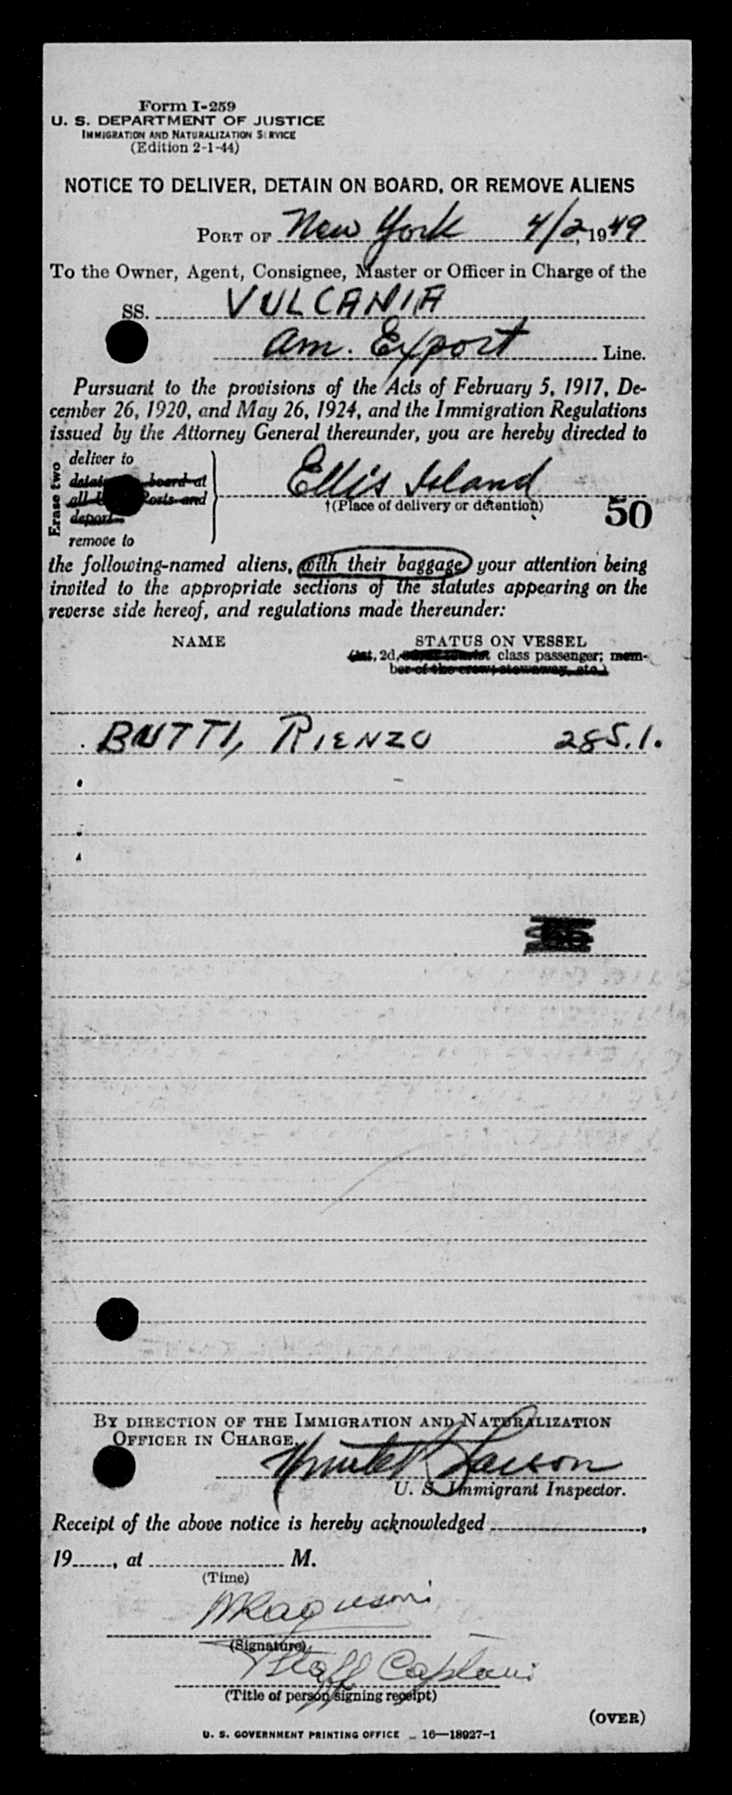 Form I-259
U. S. DEPARTMENT OF JUSTICE
IMMIGRATION AND NATURALIZATION SERVICE
(Edition 2-1-44)
NOTICE TO DELIVER, DETAIN ON BOARD, OR REMOVE ALIENS
PORT OF New York 4/2, 1949
To the Owner, Agent, Consignee, Master or Officer in Charge of the
SS. VULCANIA
Am. Export Line.
Pursuant to the provisions of the Acts of February 5, 1917, De-
cember 26, 1920, and May 26, 1924, and the Immigration Regulations
issued by the Attorney General thereunder, you are hereby directed to
Erase two
deliver to
board at
Ellis Island
all Ports and
†(Place of delivery or detention)
50
deport
remove to
the following-named aliens, with their baggage, your attention being
invited to the appropriate sections of the statutes appearing on the
reverse side hereof, and regulations made thereunder:
NAME STATUS ON VESSEL
(1st, 2d, class passenger; mem-
ber of the crew, stowaway, etc.)
BUTTI, RIENZO 285.1.
BY DIRECTION OF THE IMMIGRATION AND NATURALIZATION
OFFICER IN CHARGE.
Larson
U. S. Immigrant Inspector.
Receipt of the above notice is hereby acknowledged ,
19 , at M.
(Time)
(Signature)
Staff Captain
(Title of person signing receipt)
(OVER)
U. S. GOVERNMENT PRINTING OFFICE 16—18927-1